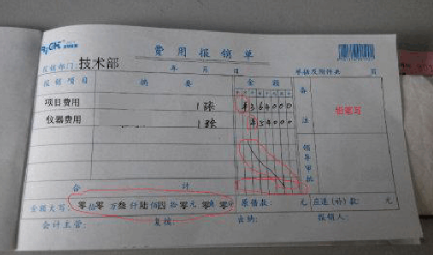 费用报销单
报销部门:技术部 年 月 日 单据及附件共 页
报销项目 摘要 金额 备注
项目费用 1张 ¥364000
仪器费用 1张 ¥54000
领导审批
合计
零拾零万叁仟陆佰四拾零元零角零分 原借款: 元 应退(补)款: 元
会计主管: 复核: 出纳: 报销人: